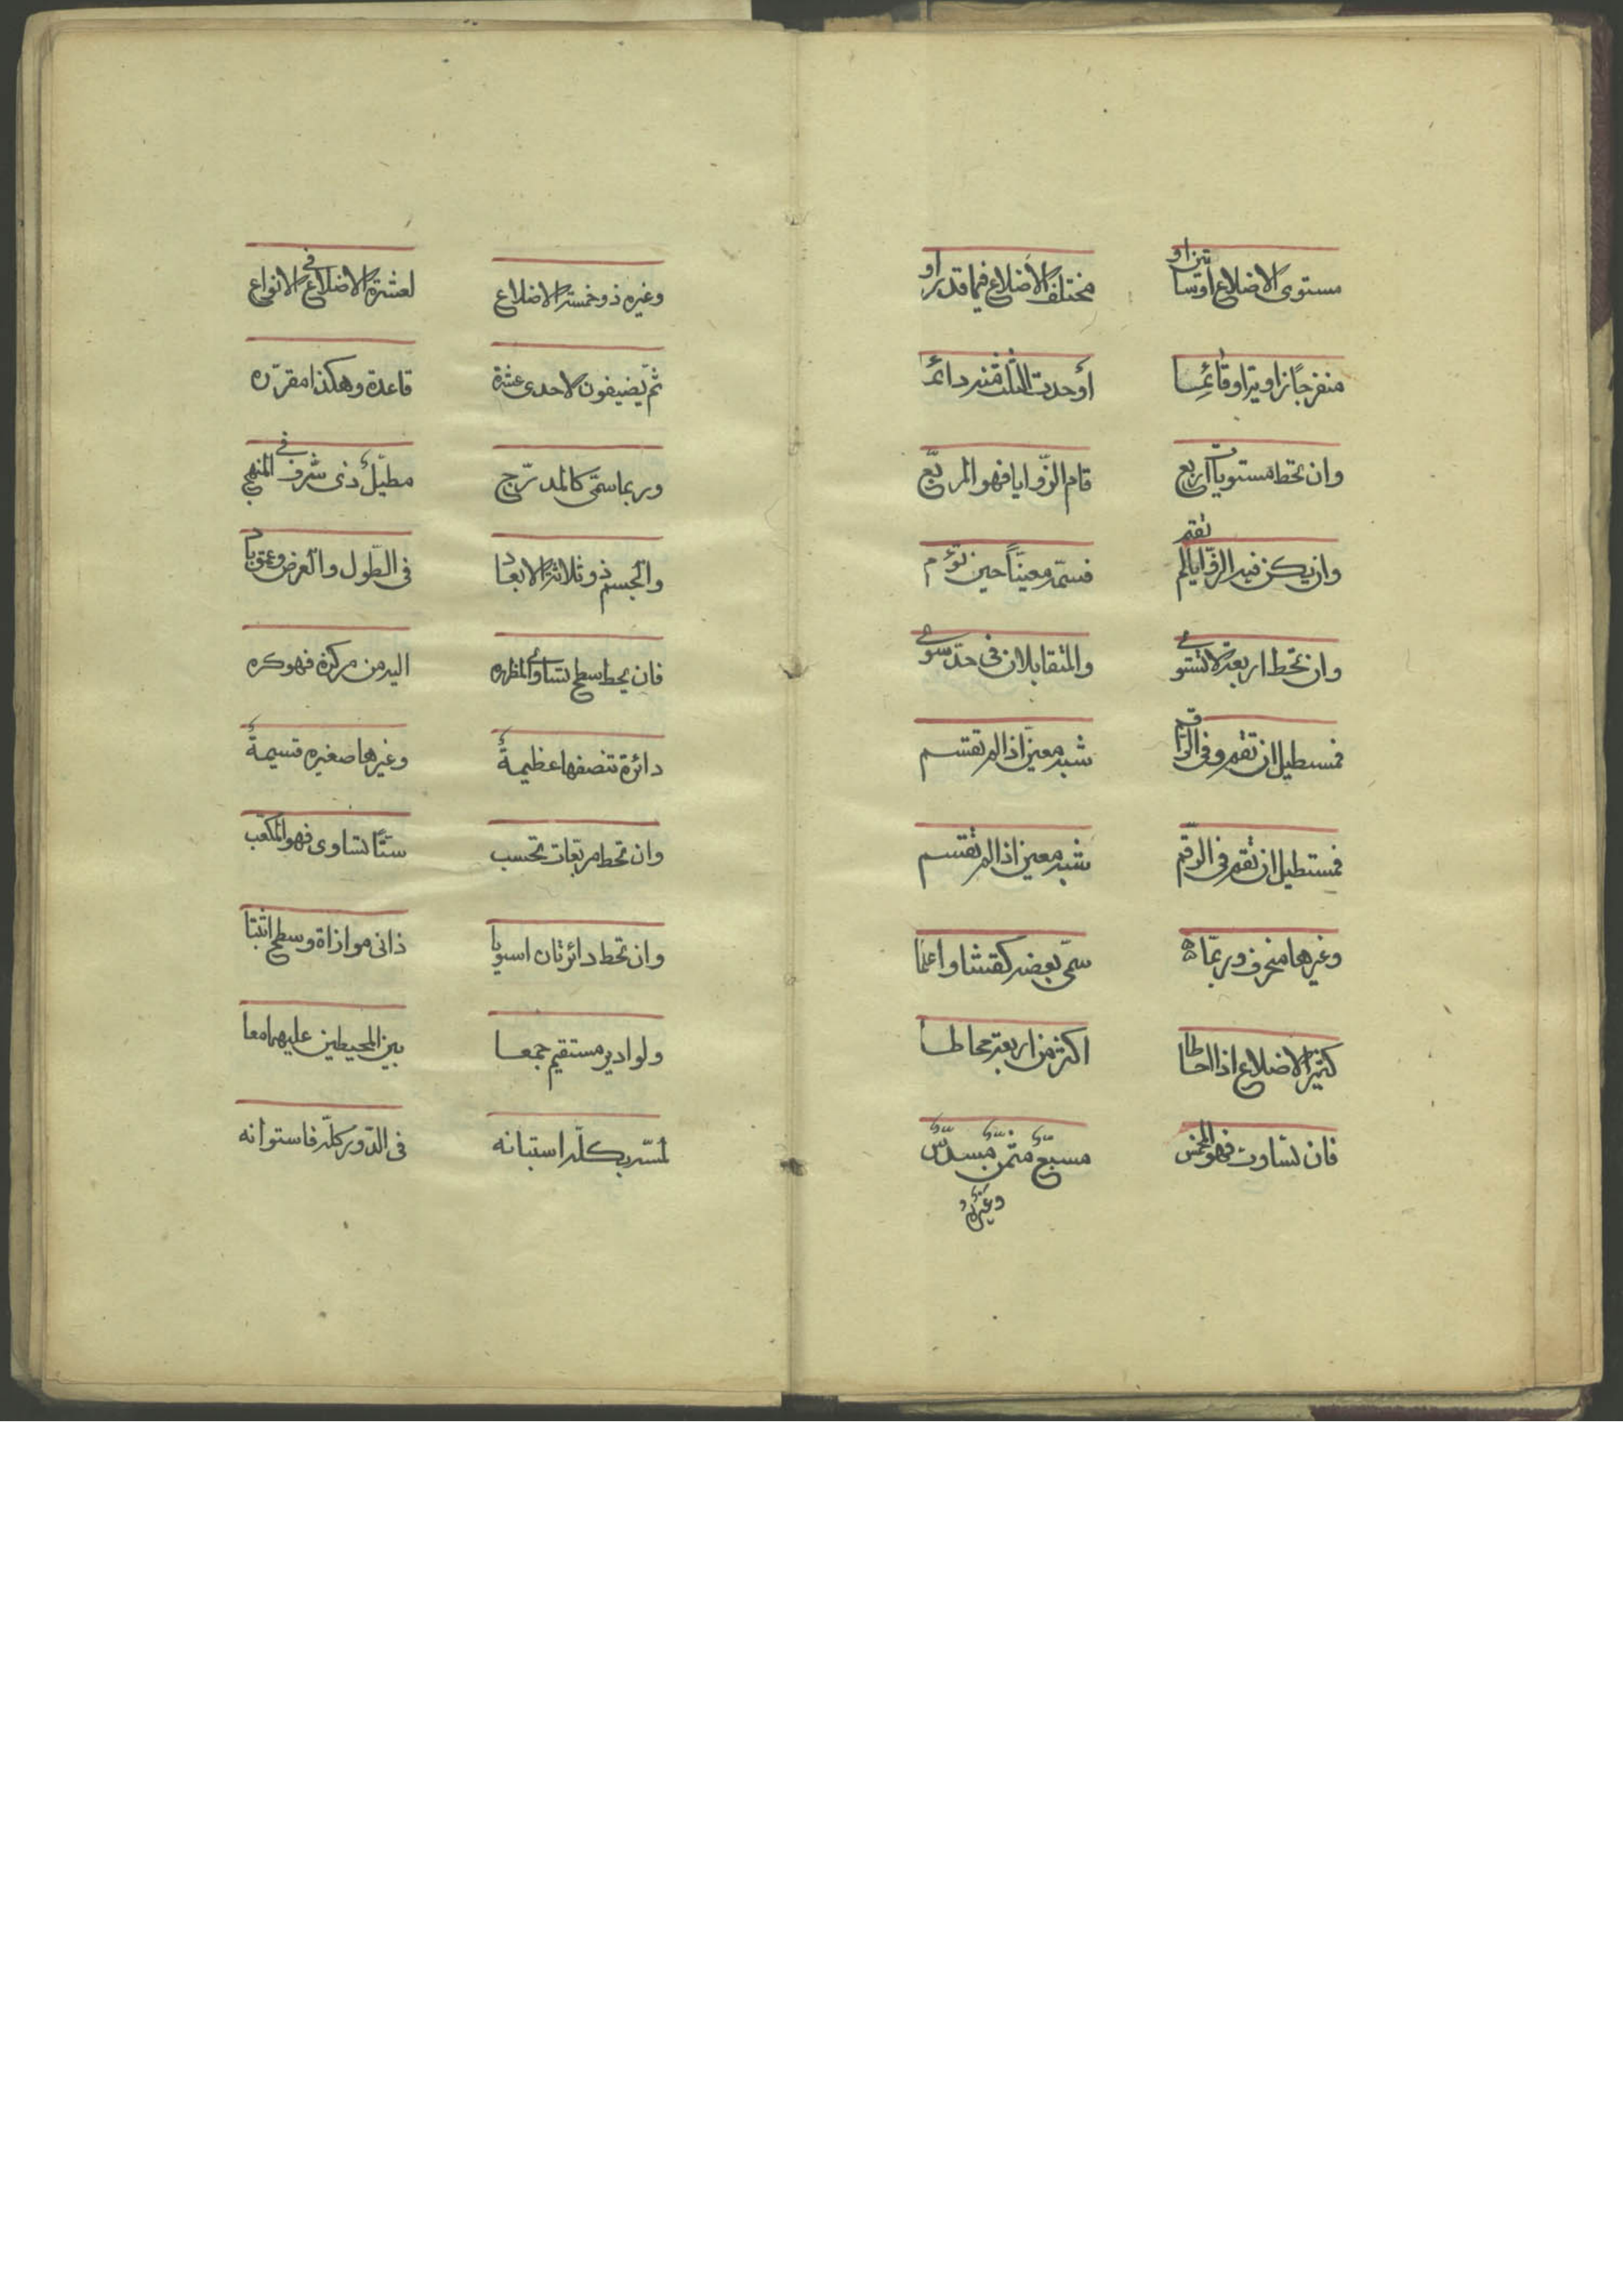 مستوى الاضلاع اوتساتين او مختلف الاضلاع فيما قد راو
منفرجا زاوية او قائما او حدت الثلث منه دائما
وان تحط مستويات اربع قام الزّوايا فهو المربّع
وان يكن فيه الزّوايا لم تقم فسمّه معيّناً حين تؤم
وان تحط اربعة لا تستوى والمتقابلان فى حدّ سوى
فمستطيل ان تقم وفى الرّقم شبه معيّن اذا لم تقتسم
فمستطيل ان تقم فى الرّقم شبه معين اذا لم تقتسم
وغيرها منحرف وربّما سمّى بعضه كقثّا واعلما
كثير الاضلاع اذا احاطا اكثر من اربعة محاطا
فان تساوت فهو المخمس مسبّع مثمّن مسدّس
وغيره
وغيره ذو خمسة الاضلاع لعشرة الاضلاع فى الانواع
ثمّ يضيفون لاحدى عشرة قاعدة وهكذا مقرّره
وربما سمّى كالمدرّج مطبّل ذى شرف فى المنهج
والجسم ذو ثلاثة الابعاد فى الطّول والعرض وعمق باد
فان يحط سطح تساوى المظهره اليه من مركزة فهو كره
دائرة تنصفها عظيمةٌ وغيرها صغيره قسيمةٌ
وان تحط مربّعات تحسب ستّا تساوى فهو المكعّب
وان تحط دائرتان اسويا ذاتى موازاة وسطح اثبتا
ولو ادير مستقيم جمعا بين المحيطين عليهما معا
لمسّه بكلّه استبانه فى الدّور كلّه فاستوانه